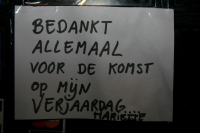 BEDANKT
ALLEMAAL
VOOR DE KOMST
OP MIJN
VERJAARDAG
MARIETJE